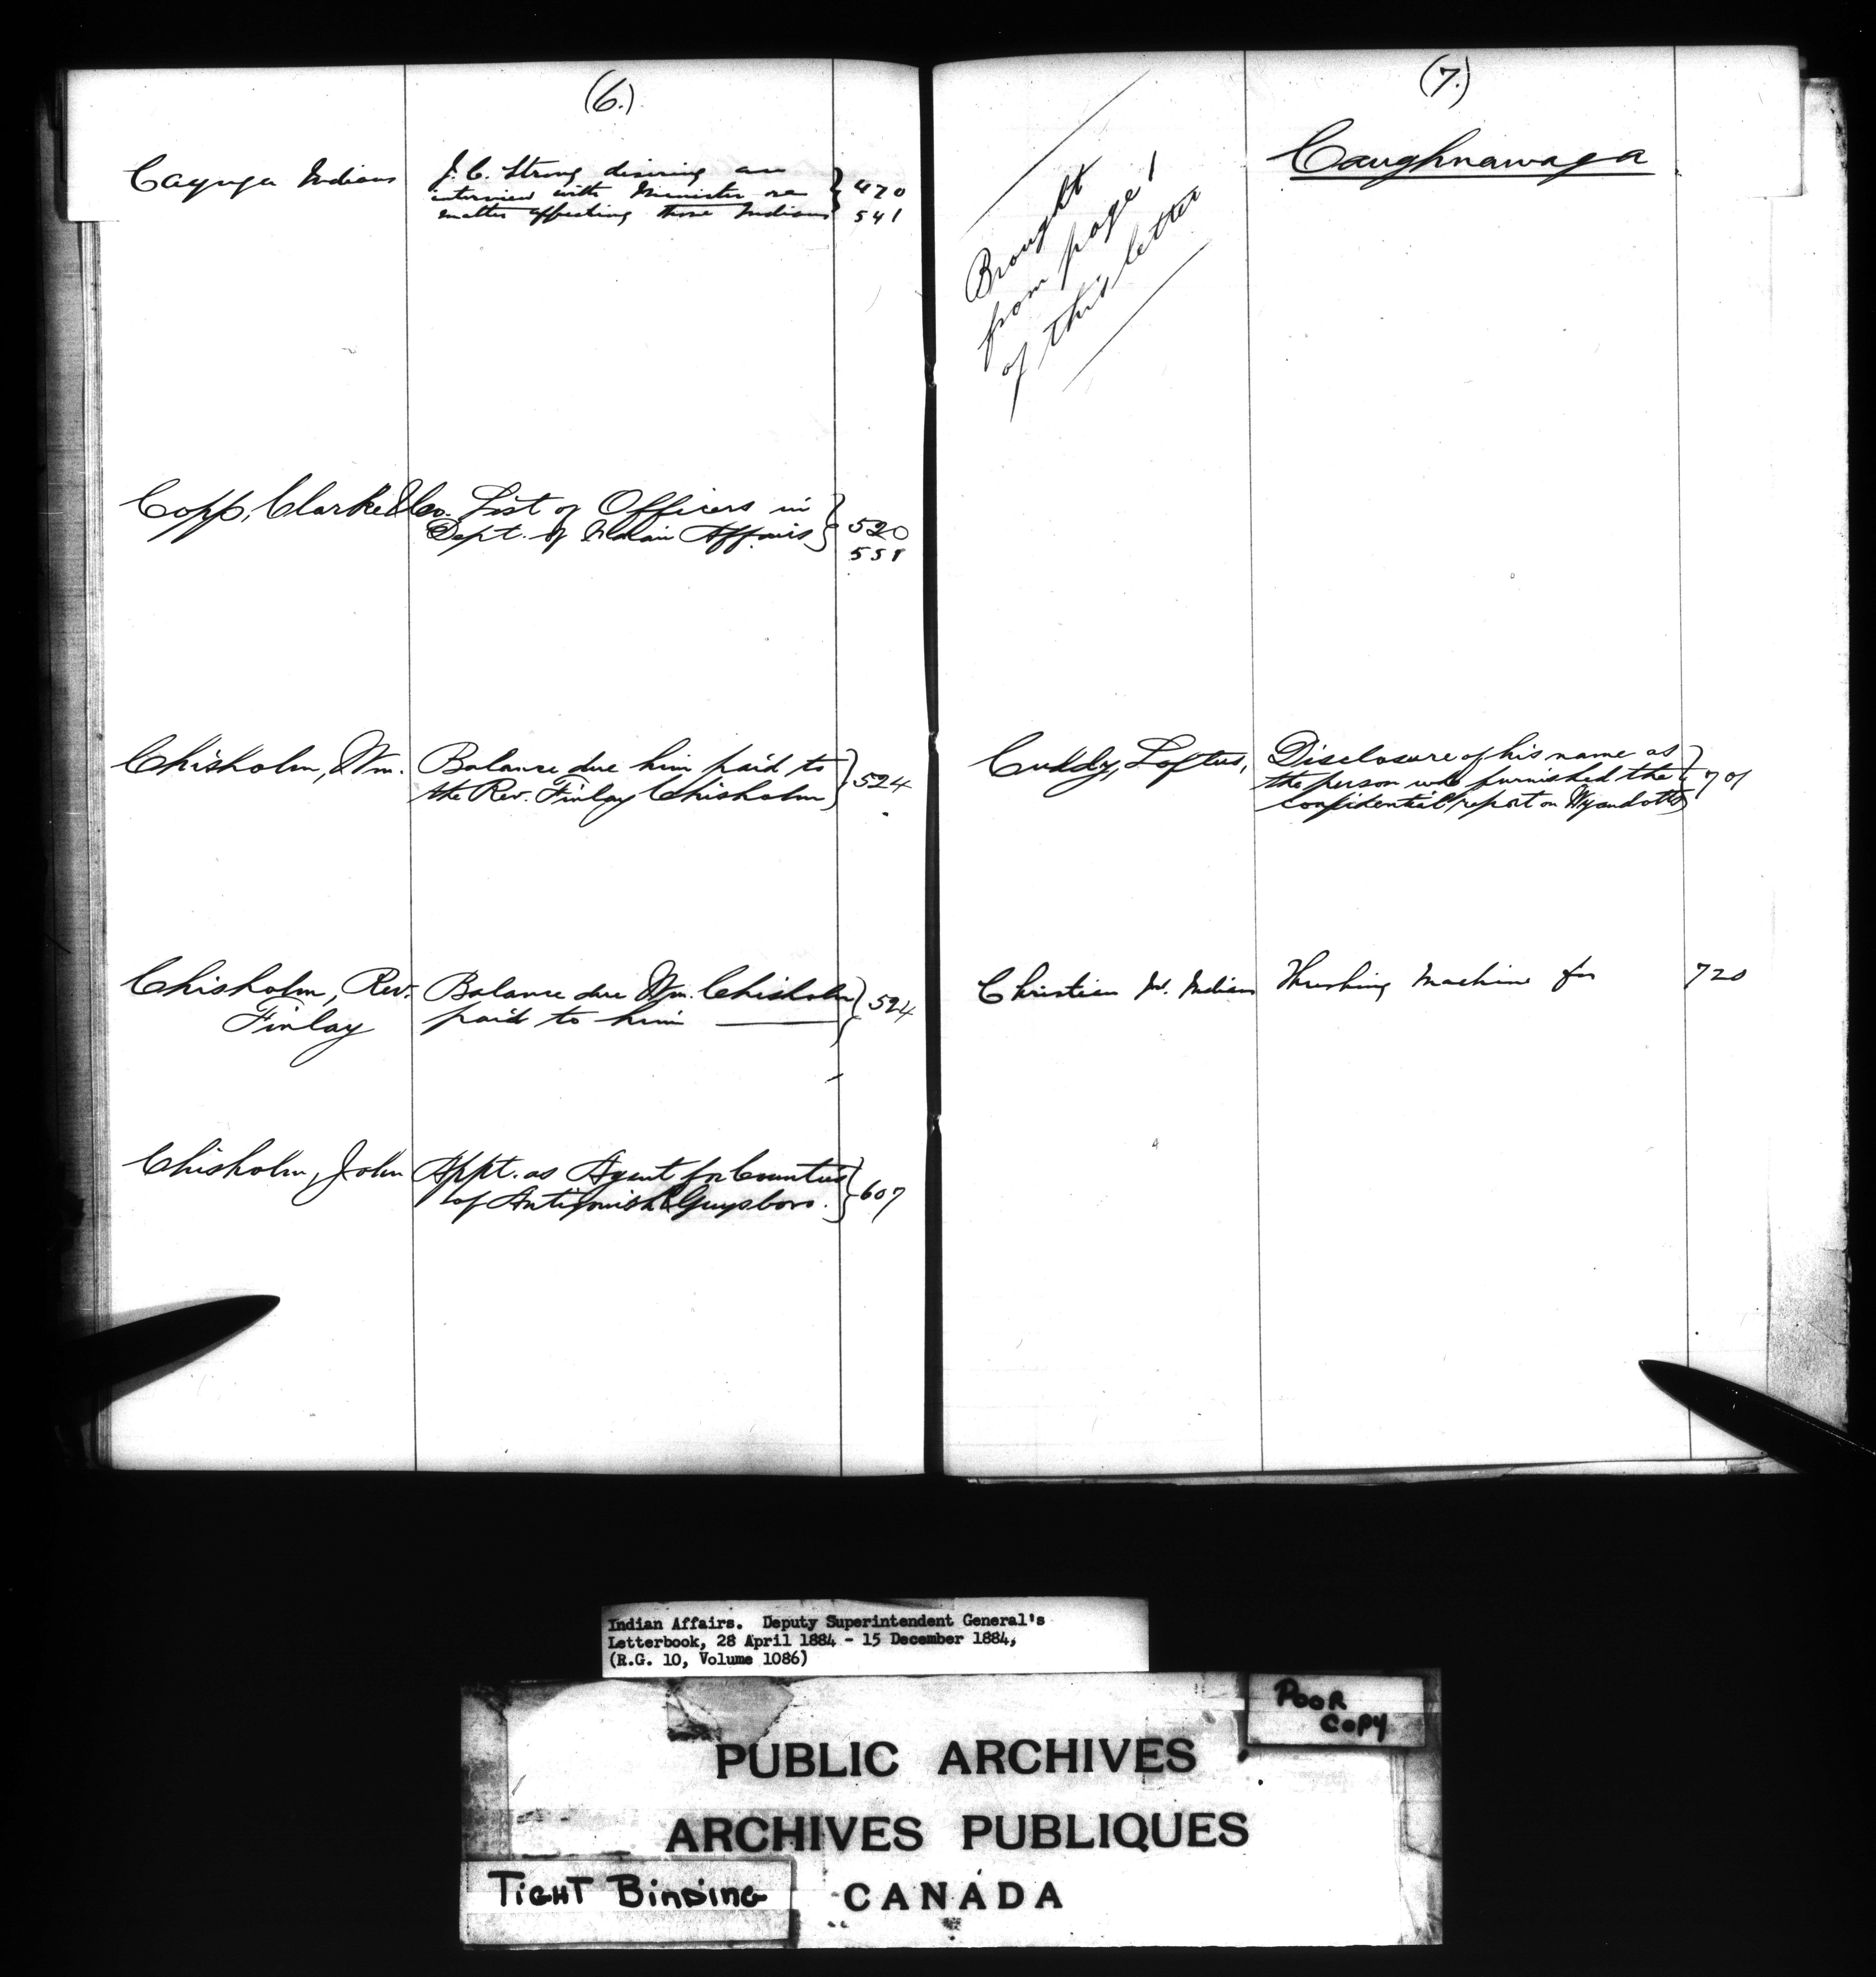 (6.)
Cayuga Indians
J. C. Strong desiring an
interview with Minister on
matter affecting those Indians
470
541
Copp, Clarke & Co.
List of Officers in
Dept. of Indian Affairs
520
551
Chisholm, Wm.
Balance due him paid to
the Rev. Finlay Chisholm
524
Chisholm, Rev.
Finlay
Balance due Wm. Chisholm
paid to him
524
Chisholm, John
Appt. as Agent for Counties
of Antigonish & Guysboro.
607
(7.)
Caughnawaga
Brought
from page 1
of this letter
Cuddy, Loftus,
Disclosure of his name as
the person who furnished the
confidential report on Wyandotts
701
Christian Indian
Thrashing Machine for
720
Indian Affairs. Deputy Superintendent General's
Letterbook, 28 April 1884 - 15 December 1884,
(R.G. 10, Volume 1086)
POOR
COPY
PUBLIC ARCHIVES
ARCHIVES PUBLIQUES
CANADA
TIGHT BINDING